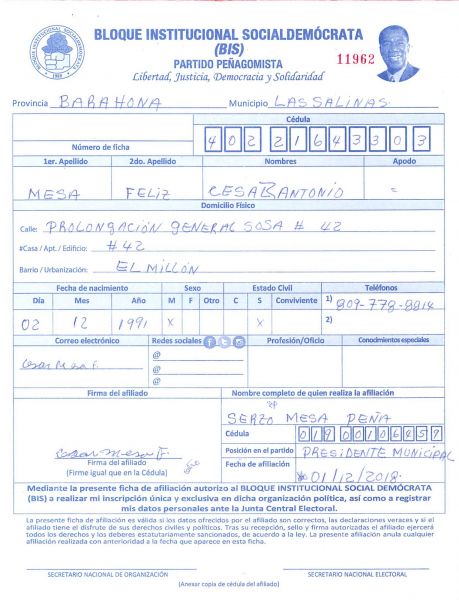 BLOQUE INSTITUCIONAL SOCIALDEMÓCRATA
(BIS)
PARTIDO PEÑAGOMISTA
Libertad, Justicia, Democracia y Solidaridad
11962
Provincia BARAHONA Municipio LAS SALINAS
Cédula
Número de ficha 402 2164330 3
1er. Apellido 2do. Apellido Nombres Apodo
MESA FELIZ CESAR ANTONIO -
Domicilio Físico
Calle: PROLONGACIÓN GENERAL SOSA # 42
#Casa / Apt. / Edificio: #42
Barrio / Urbanización: EL MILLÓN
Fecha de nacimiento Sexo Estado Civil Teléfonos
Día Mes Año M F Otro C S Conviviente 1) 809-778-8814
02 12 1991 X X 2)
Correo electrónico Redes sociales Profesión/Oficio Conocimientos especiales
Cesar Mesa F. @
@
@
Firma del afiliado Nombre completo de quien realiza la afiliación
SERZO MESA PEÑA
Cédula
Cesar Mesa F. Posición en el partido PRESIDENTE MUNICIPAL
Firma del afiliado Fecha de afiliación
(Firme igual que en la Cédula) 01/12/2018
Mediante la presente ficha de afiliación autorizo al BLOQUE INSTITUCIONAL SOCIAL DEMÓCRATA
(BIS) a realizar mi inscripción única y exclusiva en dicha organización política, así como a registrar
mis datos personales ante la Junta Central Electoral.
La presente ficha de afiliación es válida si los datos ofrecidos por el afiliado son correctos, las declaraciones veraces y si el
afiliado tiene el disfrute de sus derechos civiles y políticos. Tras su recepción, sello y firma autorizadas el afiliado ejercerá
todos los derechos y los deberes estatutariamente sancionados, de acuerdo a la ley. La presente afiliación anula cualquier
afiliación realizada con anterioridad a la fecha que aparece en esta ficha.
SECRETARIO NACIONAL DE ORGANIZACIÓN SECRETARIO NACIONAL ELECTORAL
(Anexar copia de cédula del afiliado)